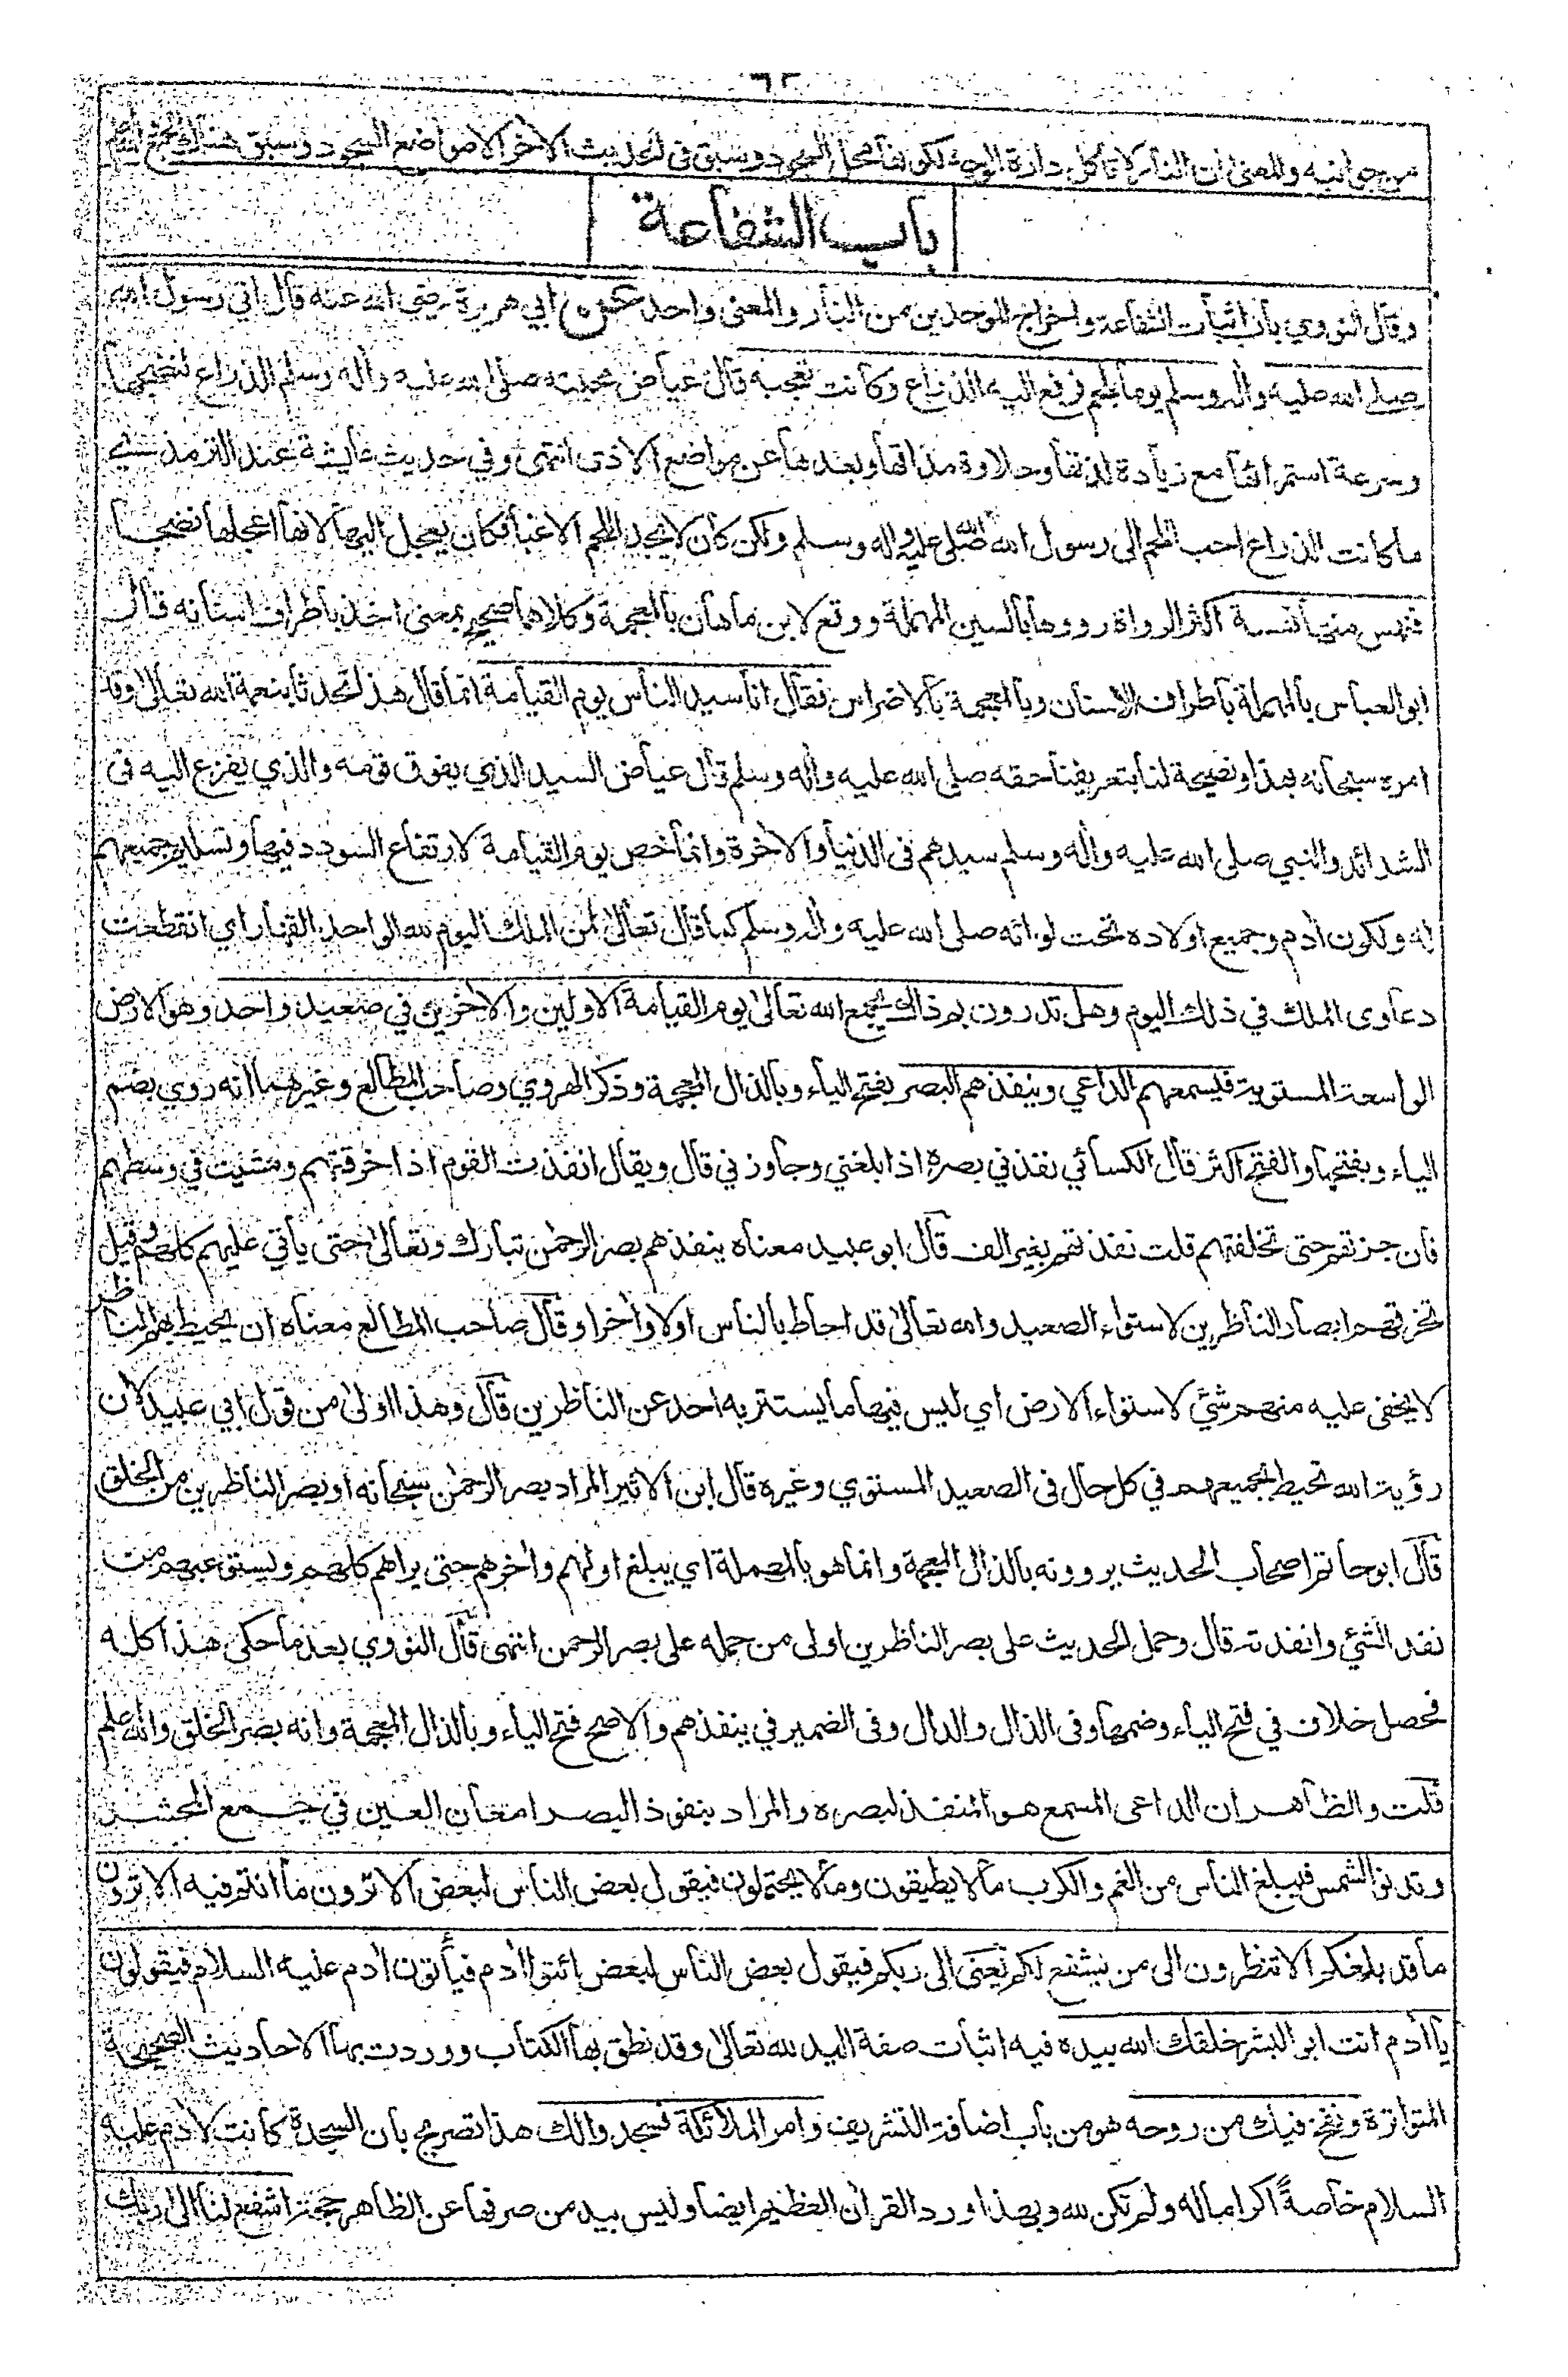 من جوانبه والمعنى ان النار لا تأكل دارة الوجه لكونها محل السجود وسبق فى الحديث الاخر الا مواضع السجود وسبق هناك الجمع بينهما
باب الشفاعة
وقال النووي باب اثبات الشفاعة واخراج الموحدين من النار والمعنى واحد عن ابي هريرة رضي الله عنه قال اتي رسول الله
صلى الله عليه واله وسلم يوما بلحم فرفع اليه الذراع وكانت تعجبه قال عياض محبته صلى الله عليه واله وسلم الذراع لنضجها
وسرعة استمرائها مع زيادة لذتها وحلاوة مذاقها وبعدها عن مواضع الاذى انتهى وفي حديث عايشة عند الترمذي
ما كانت الذراع احب اللحم الى رسول الله صلى الله عليه واله وسلم ولكن كان لا يجد اللحم الا غبا فكان يعجل اليها لانها اعجلها نضجا
فنهس منها نهسة اكثر الرواة رووها بالسين المهملة ووقع لابن ماهان بالمعجمة وكلاهما صحيح بمعنى اخذ باطراف اسنانه قال
ابو العباس بالمهملة باطراف الاسنان وبالمعجمة بالاضراس فقال انا سيد الناس يوم القيامة انما قال هذا تحدثا بنعمة الله تعالى وقد
امره سبحانه بهذا ونصيحة لنا بتعريفنا حقه صلى الله عليه واله وسلم قال عياض السيد الذي يفوق قومه والذي يفزع اليه فى
الشدائد والنبي صلى الله عليه واله وسلم سيدهم فى الدنيا والاخرة وانما خص يوم القيامة لارتفاع السودد فيها وتسليم جميعهم
له ولكون ادم وجميع اولاده تحت لوائه صلى الله عليه واله وسلم كما قال تعالى لمن الملك اليوم لله الواحد القهار اي انقطعت
دعاوى الملك في ذلك اليوم وهل تدرون بم ذاك يجمع الله تعالى يوم القيامة الاولين والاخرين في صعيد واحد وهو الارض
الواسعة المستوية فيسمعهم الداعي وينفذهم البصر بفتح الياء وبالذال المعجمة وذكر الهروي وصاحب المطالع وغيرهما انه روي بضم
الياء وبفتحها والفتح اكثر قال الكسائي نفذني بصره اذا بلغني وجاوزني قال ويقال انفذت القوم اذا خرقتهم ومشيت في وسطهم
فان جزتهم حتى تخلفتهم قلت نفذتهم بغير الف قال ابو عبيد معناه ينفذهم بصر الرحمن تبارك وتعالى حتى يأتي عليهم كلهم وقيل
تخرقهم ابصار الناظرين لاستواء الصعيد والله تعالى قد احاط بالناس اولا واخرا وقال صاحب المطالع معناه ان يحيط بهم الناظر
لا يخفى عليه منهم شئ لاستواء الارض اي ليس فيها ما يستتر به احد عن الناظرين قال وهذا اولى من قول ابي عبيد لان
رؤية الله تحيط بجميعهم في كل حال فى الصعيد المستوي وغيره قال ابن الاثير المراد بصر الرحمن سبحانه او بصر الناظرين من الخلق
قال ابو حاتم اصحاب الحديث يروونه بالذال المعجمة وانما هو بالمهملة اي يبلغ اولهم واخرهم حتى يراهم كلهم ويستوعبهم من
نفد الشئ وانفدته قال وحمل الحديث على بصر الناظرين اولى من حمله على بصر الرحمن انتهى قال النووي بعد ما حكى هذا كله
فحصل خلاف في فتح الياء وضمها وفى الذال والدال وفى الضمير في ينفذهم والاصح فتح الياء وبالذال المعجمة وانه بصر الخلق والله اعلم
قلت والظاهر ان الداعى المسمع هو المنفذ لبصره والمراد بنفوذ البصر امعان العين في جمع المحشر
وتدنو الشمس فيبلغ الناس من الغم والكرب ما لا يطيقون وما لا يحتملون فيقول بعض الناس لبعض الا ترون ما انتم فيه الا ترون
ما قد بلغكم الا تنظرون الى من يشفع لكم يعنى الى ربكم فيقول بعض الناس لبعض ائتوا ادم فيأتون ادم عليه السلام فيقولون
يا ادم انت ابو البشر خلقك الله بيده فيه اثبات صفة اليد لله تعالى وقد نطق بها الكتاب ووردت بها الاحاديث الصحيحة
المتواترة ونفخ فيك من روحه هو من باب اضافة التشريف وامر الملائكة فسجدوا لك هذا تصريح بان السجدة كانت لادم عليه
السلام خاصةً اكراما له ولم تكن لله وبهذا ورد القران العظيم ايضا وليس بيد من صرفها عن الظاهر حجة اشفع لنا الى ربك